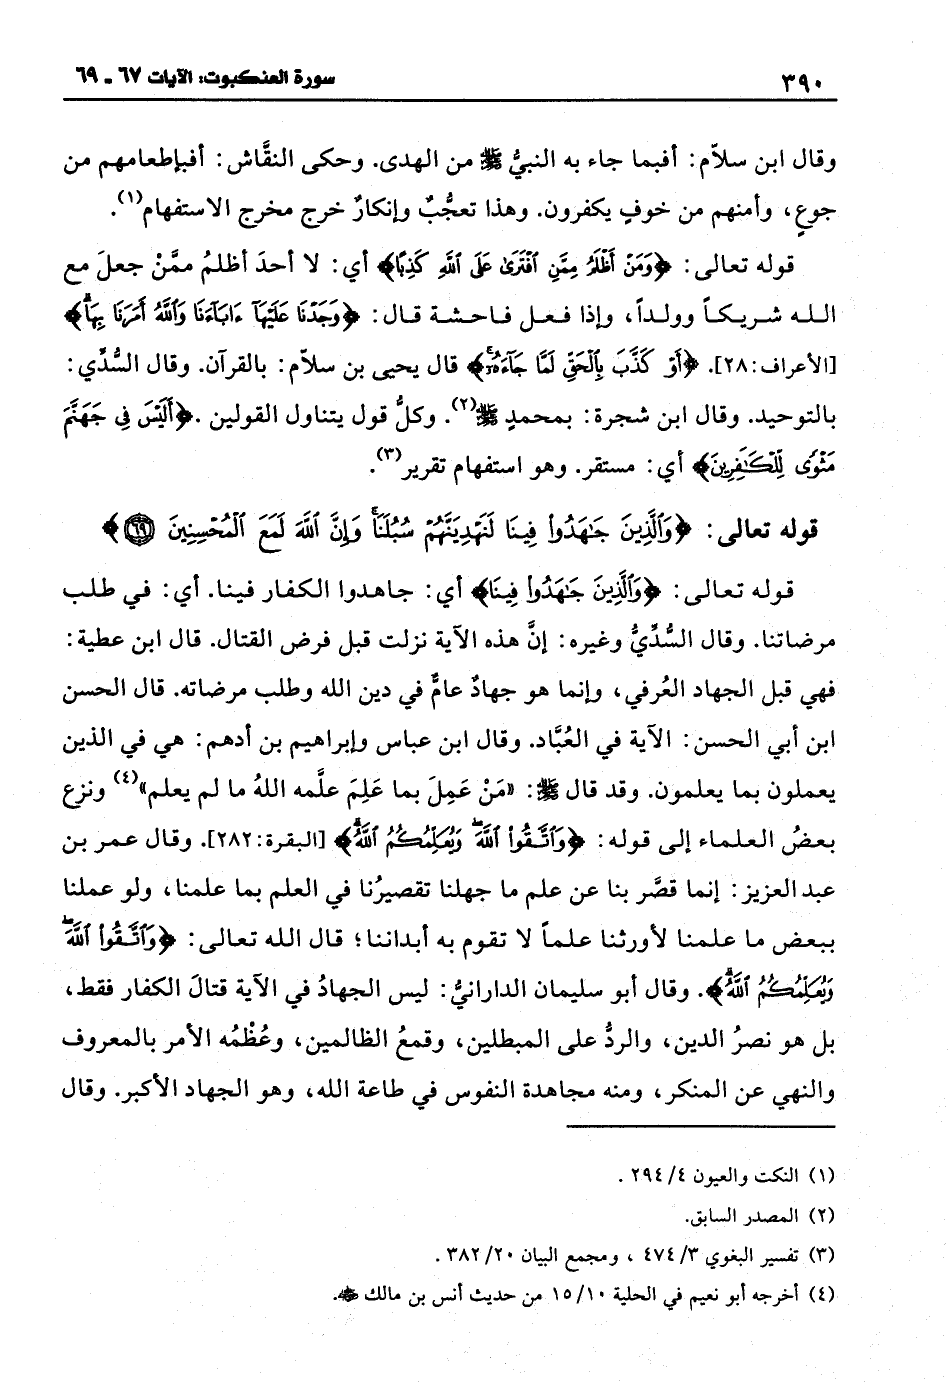 ٣٩٠ سورة العنكبوت: الآيات ٦٧ ـ ٦٩
وقال ابن سلاّم: أفبما جاء به النبيُّ ﷺ من الهدى. وحكى النقَّاش: أفبإطعامهم من
جوعٍ، وأمنهم من خوفٍ يكفرون. وهذا تعجُّبٌ وإنكارٌ خرج مخرج الاستفهام(١).
قوله تعالى: ﴿وَمَنْ أَظْلَمُ مِمَّنِ ٱفْتَرَىٰ عَلَى ٱللَّهِ كَذِبًا﴾ أي: لا أحدَ أظلمُ ممَّنْ جعل مع
الله شريكاً وولداً، وإذا فعل فاحشة قال: ﴿وَجَدْنَا عَلَيْهَآ ءَابَآءَنَا وَٱللَّهُ أَمَرَنَا بِهَاۗ﴾
[الأعراف:٢٨]. ﴿أَوْ كَذَّبَ بِٱلْحَقِّ لَمَّا جَآءَهُۥٓۚ﴾ قال يحيى بن سلاّم: بالقرآن. وقال السُّدِّي:
بالتوحيد. وقال ابن شجرة: بمحمدٍ ﷺ(٢). وكلُّ قول يتناول القولين .﴿أَلَيْسَ فِى جَهَنَّمَ
مَثْوًى لِّلْكَٰفِرِينَ﴾ أي: مستقر. وهو استفهام تقرير(٣).
قوله تعالى: ﴿وَٱلَّذِينَ جَٰهَدُوا۟ فِينَا لَنَهْدِيَنَّهُمْ سُبُلَنَاۚ وَإِنَّ ٱللَّهَ لَمَعَ ٱلْمُحْسِنِينَ ٦٩﴾
قوله تعالى: ﴿وَٱلَّذِينَ جَٰهَدُوا۟ فِينَا﴾ أي: جاهدوا الكفار فينا. أي: في طلب
مرضاتنا. وقال السُّدِّيُّ وغيره: إنَّ هذه الآية نزلت قبل فرض القتال. قال ابن عطية:
فهي قبل الجهاد العُرفي، وإنما هو جهادٌ عامٌّ في دين الله وطلب مرضاته. قال الحسن
ابن أبي الحسن: الآية في العُبَّاد. وقال ابن عباس وإبراهيم بن أدهم: هي في الذين
يعملون بما يعلمون. وقد قال ﷺ: «مَنْ عَمِلَ بما عَلِمَ علَّمه اللهُ ما لم يعلم»(٤) ونزع
بعضُ العلماء إلى قوله: ﴿وَٱتَّقُوا۟ ٱللَّهَۖ وَيُعَلِّمُكُمُ ٱللَّهُۗ﴾ [البقرة:٢٨٢]. وقال عمر بن
عبد العزيز: إنما قصَّر بنا عن علم ما جهلنا تقصيرُنا في العلم بما علمنا، ولو عملنا
ببعض ما علمنا لأورثنا علماً لا تقوم به أبداننا؛ قال الله تعالى: ﴿وَٱتَّقُوا۟ ٱللَّهَۖ
وَيُعَلِّمُكُمُ ٱللَّهُۗ﴾. وقال أبو سليمان الدارانيُّ: ليس الجهادُ في الآية قتالَ الكفار فقط،
بل هو نصرُ الدين، والردُّ على المبطلين، وقمعُ الظالمين، وعُظْمُه الأمر بالمعروف
والنهي عن المنكر، ومنه مجاهدة النفوس في طاعة الله، وهو الجهاد الأكبر. وقال
(١) النكت والعيون ٢٩٤/٤ .
(٢) المصدر السابق.
(٣) تفسير البغوي ٤٧٤/٣ ، ومجمع البيان ٣٨٢/٢٠ .
(٤) أخرجه أبو نعيم في الحلية ١٥/١٠ من حديث أنس بن مالك ﷺ.